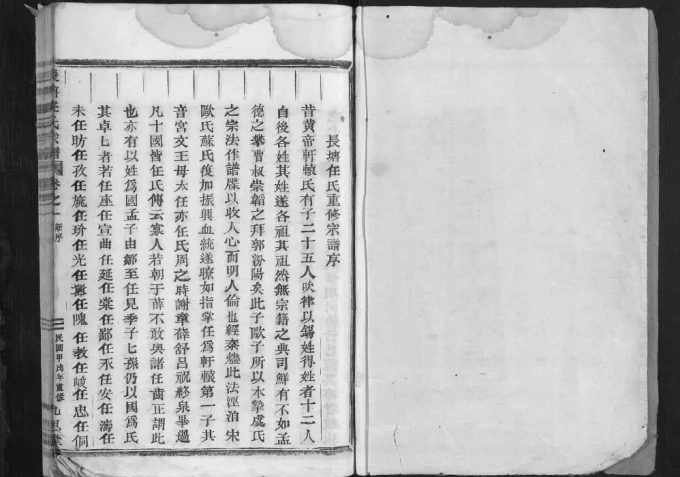 長塘任氏重修宗譜序
昔黃帝軒轅氏有子二十五人吹律以錫姓得姓者十二人
自後各姓其姓遂各祖其祖然無宗籍之典司鮮有不如孟
德之攀曹叔崇韜之拜郭汾陽矣此子歐子所以本摯虞氏
之宗法作譜牒以收人心而明人倫也經秦燼此法湮泊宋
歐氏蘇氏復加振興血統遂瞭如指掌任爲軒轅第一子其
音宮文王母太任亦任氏周之時謝章薛舒呂祝終泉畢過
凡十國皆任氏傳云寡人若朝于薛不敢與諸任齒正謂此
也亦有以姓爲國孟子由鄒至任見季子七孫仍以國爲氏
其卓七者若任座任宣曲任延任棠任鄢任丕任安任濤任
未任昉任孜任旐任玠任光任嚻任隗任敖任峻任忠任侗
長塘任氏宗譜 卷之一 新序 民國甲戌年重修